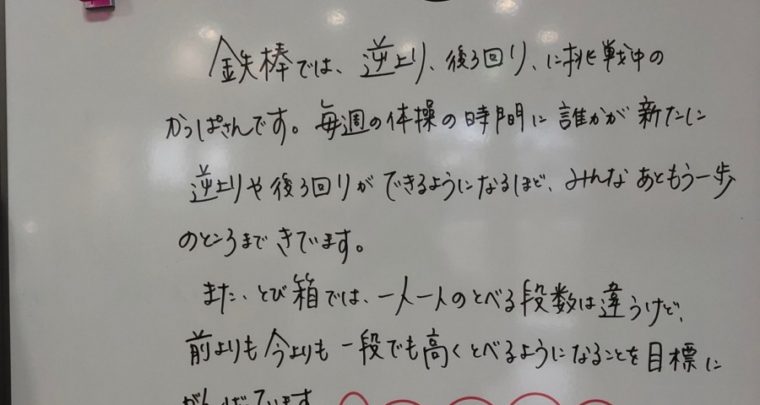 鉄棒では、逆上り、後ろ回り、に挑戦中の
かっぱさんです。毎週の体操の時間に誰かが新たに
逆上りや後ろ回りができるようになるほど、みんなあともう一歩
のところまできています。
また、とび箱では、一人一人のとべる段数は違うけど、
前よりも今よりも一段でも高くとべるようになることを目標に
がんばっています